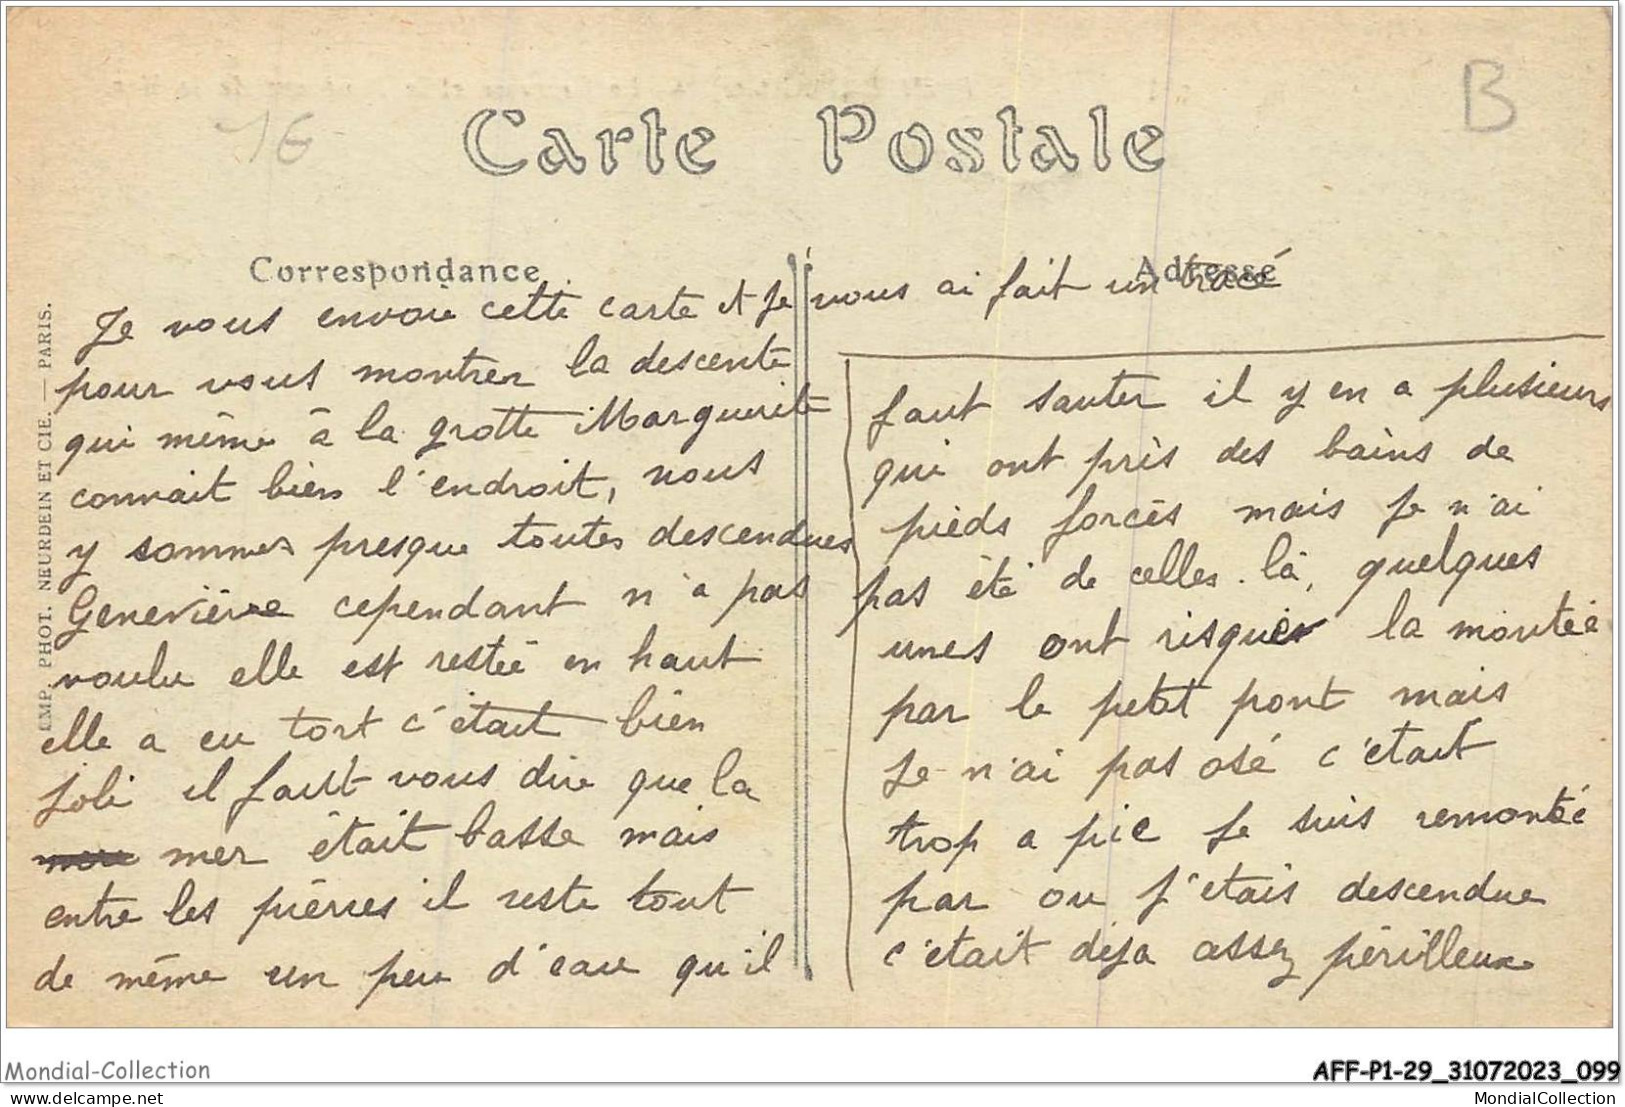 1€
B
Carte Postale
Correspondance
Adresse
IMP. PHOT. NEURDEIN ET CIE. — PARIS.
Je vous envoie cette carte et je vous ai fait un tracé
pour vous montrer la descente
qui mène à la grotte Marguerite
connait bien l'endroit, nous
y sommes presque toutes descendues
Geneviève cependant n'a pas
voulu elle est restée en haut
elle a eu tort c'était bien
joli il faut vous dire que la
mer était basse mais
entre les pierres il reste tout
de même un peu d'eau qu'il
faut sauter il y en a plusieurs
qui ont pris des bains de
pieds forcés mais je n'ai
pas été de celles-là, quelques
unes ont risquer la montée
par le petit pont mais
je n'ai pas osé c'était
trop a pic je suis remontée
par ou j'étais descendue
c'était déja assez périlleux
Mondial-Collection
AFF-P1-29_31072023_099
www.delcampe.net
MondialCollection